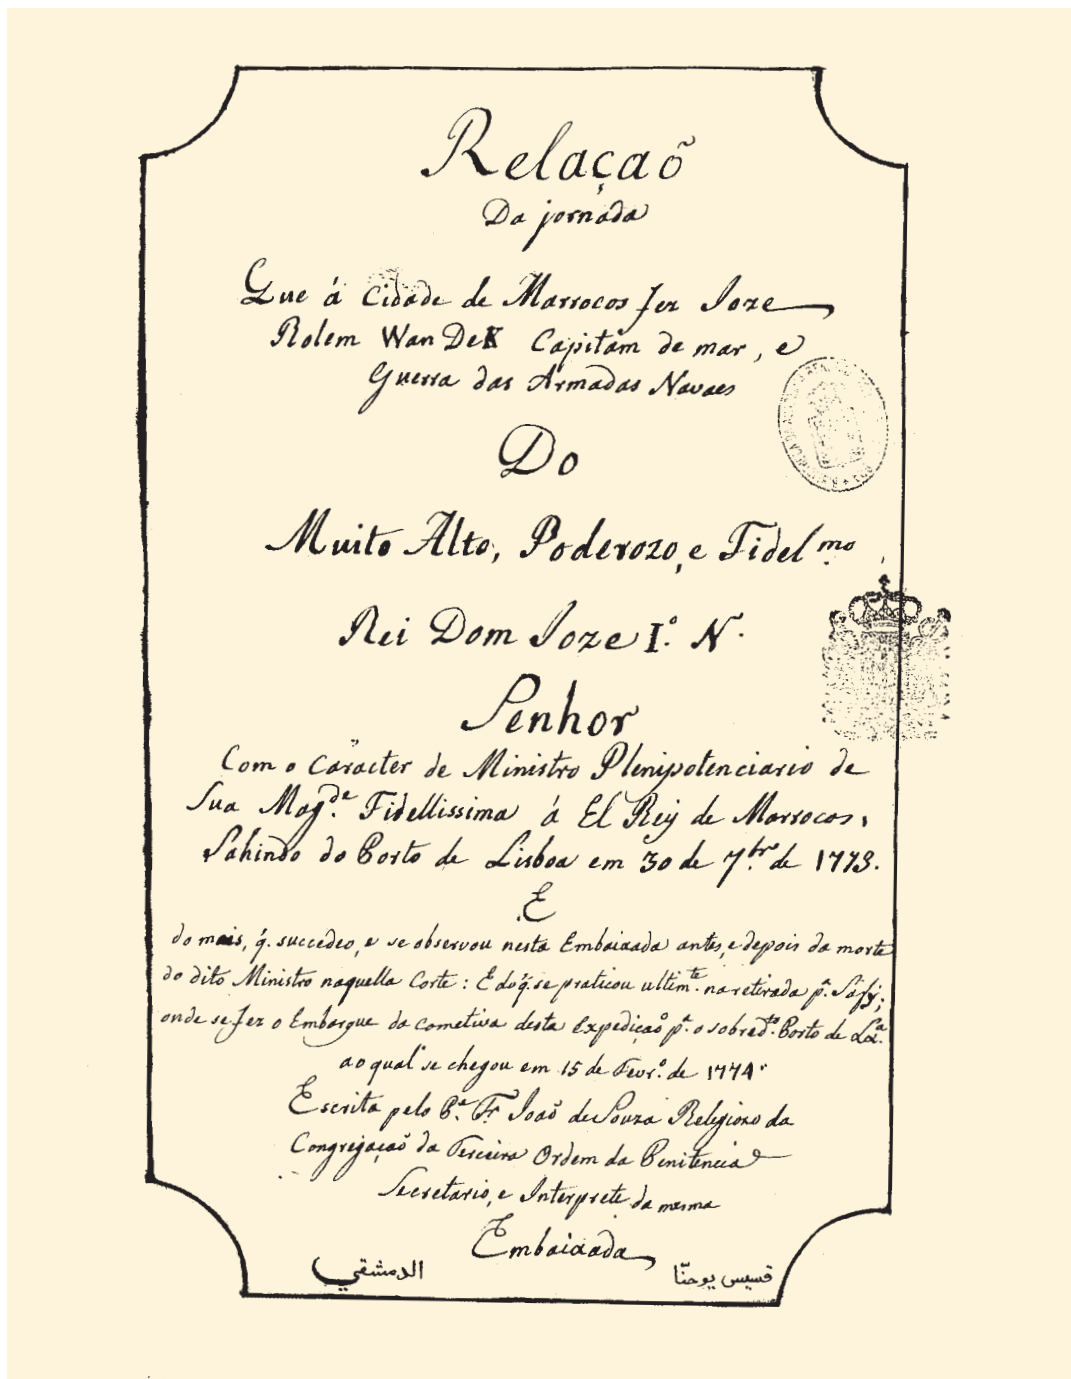 Relaçaõ
Da jornada
Que á Cidade de Marrocos fez Joze
Rolem Wan DeK Capitám de mar, e
Guerra das Armadas Navaes
Do
Muito Alto, Poderozo, e Fidel.mo
Rei Dom Joze I.º N.
Senhor
Com o Caracter de Ministro Plenipotenciario de
Sua Mag.de Fidellissima á El Rey de Marrocos,
Sahindo do Porto de Lisboa em 30 de 7.bro de 1773.
E
do mais, q̃. succedeo, e se observou nesta Embaixada antes, e depois da morte
do dito Ministro naquella Corte: E do q̃. se praticou ultim.te na retirada p.ª Safy;
onde se fez o Embarque da cometiva desta Expediçaõ p.ª o sobred.to Porto de Lx.ª
ao qual se chegou em 15 de Fevr.º de 1774.
Escrita pelo P.e Fr. Joaõ de Souza Religiozo da
Congregaçaõ da Terceira Ordem da Penitencia
Secretario, e Interprete da mesma
Embaixada
قسيس يوحنّا الدمشقي